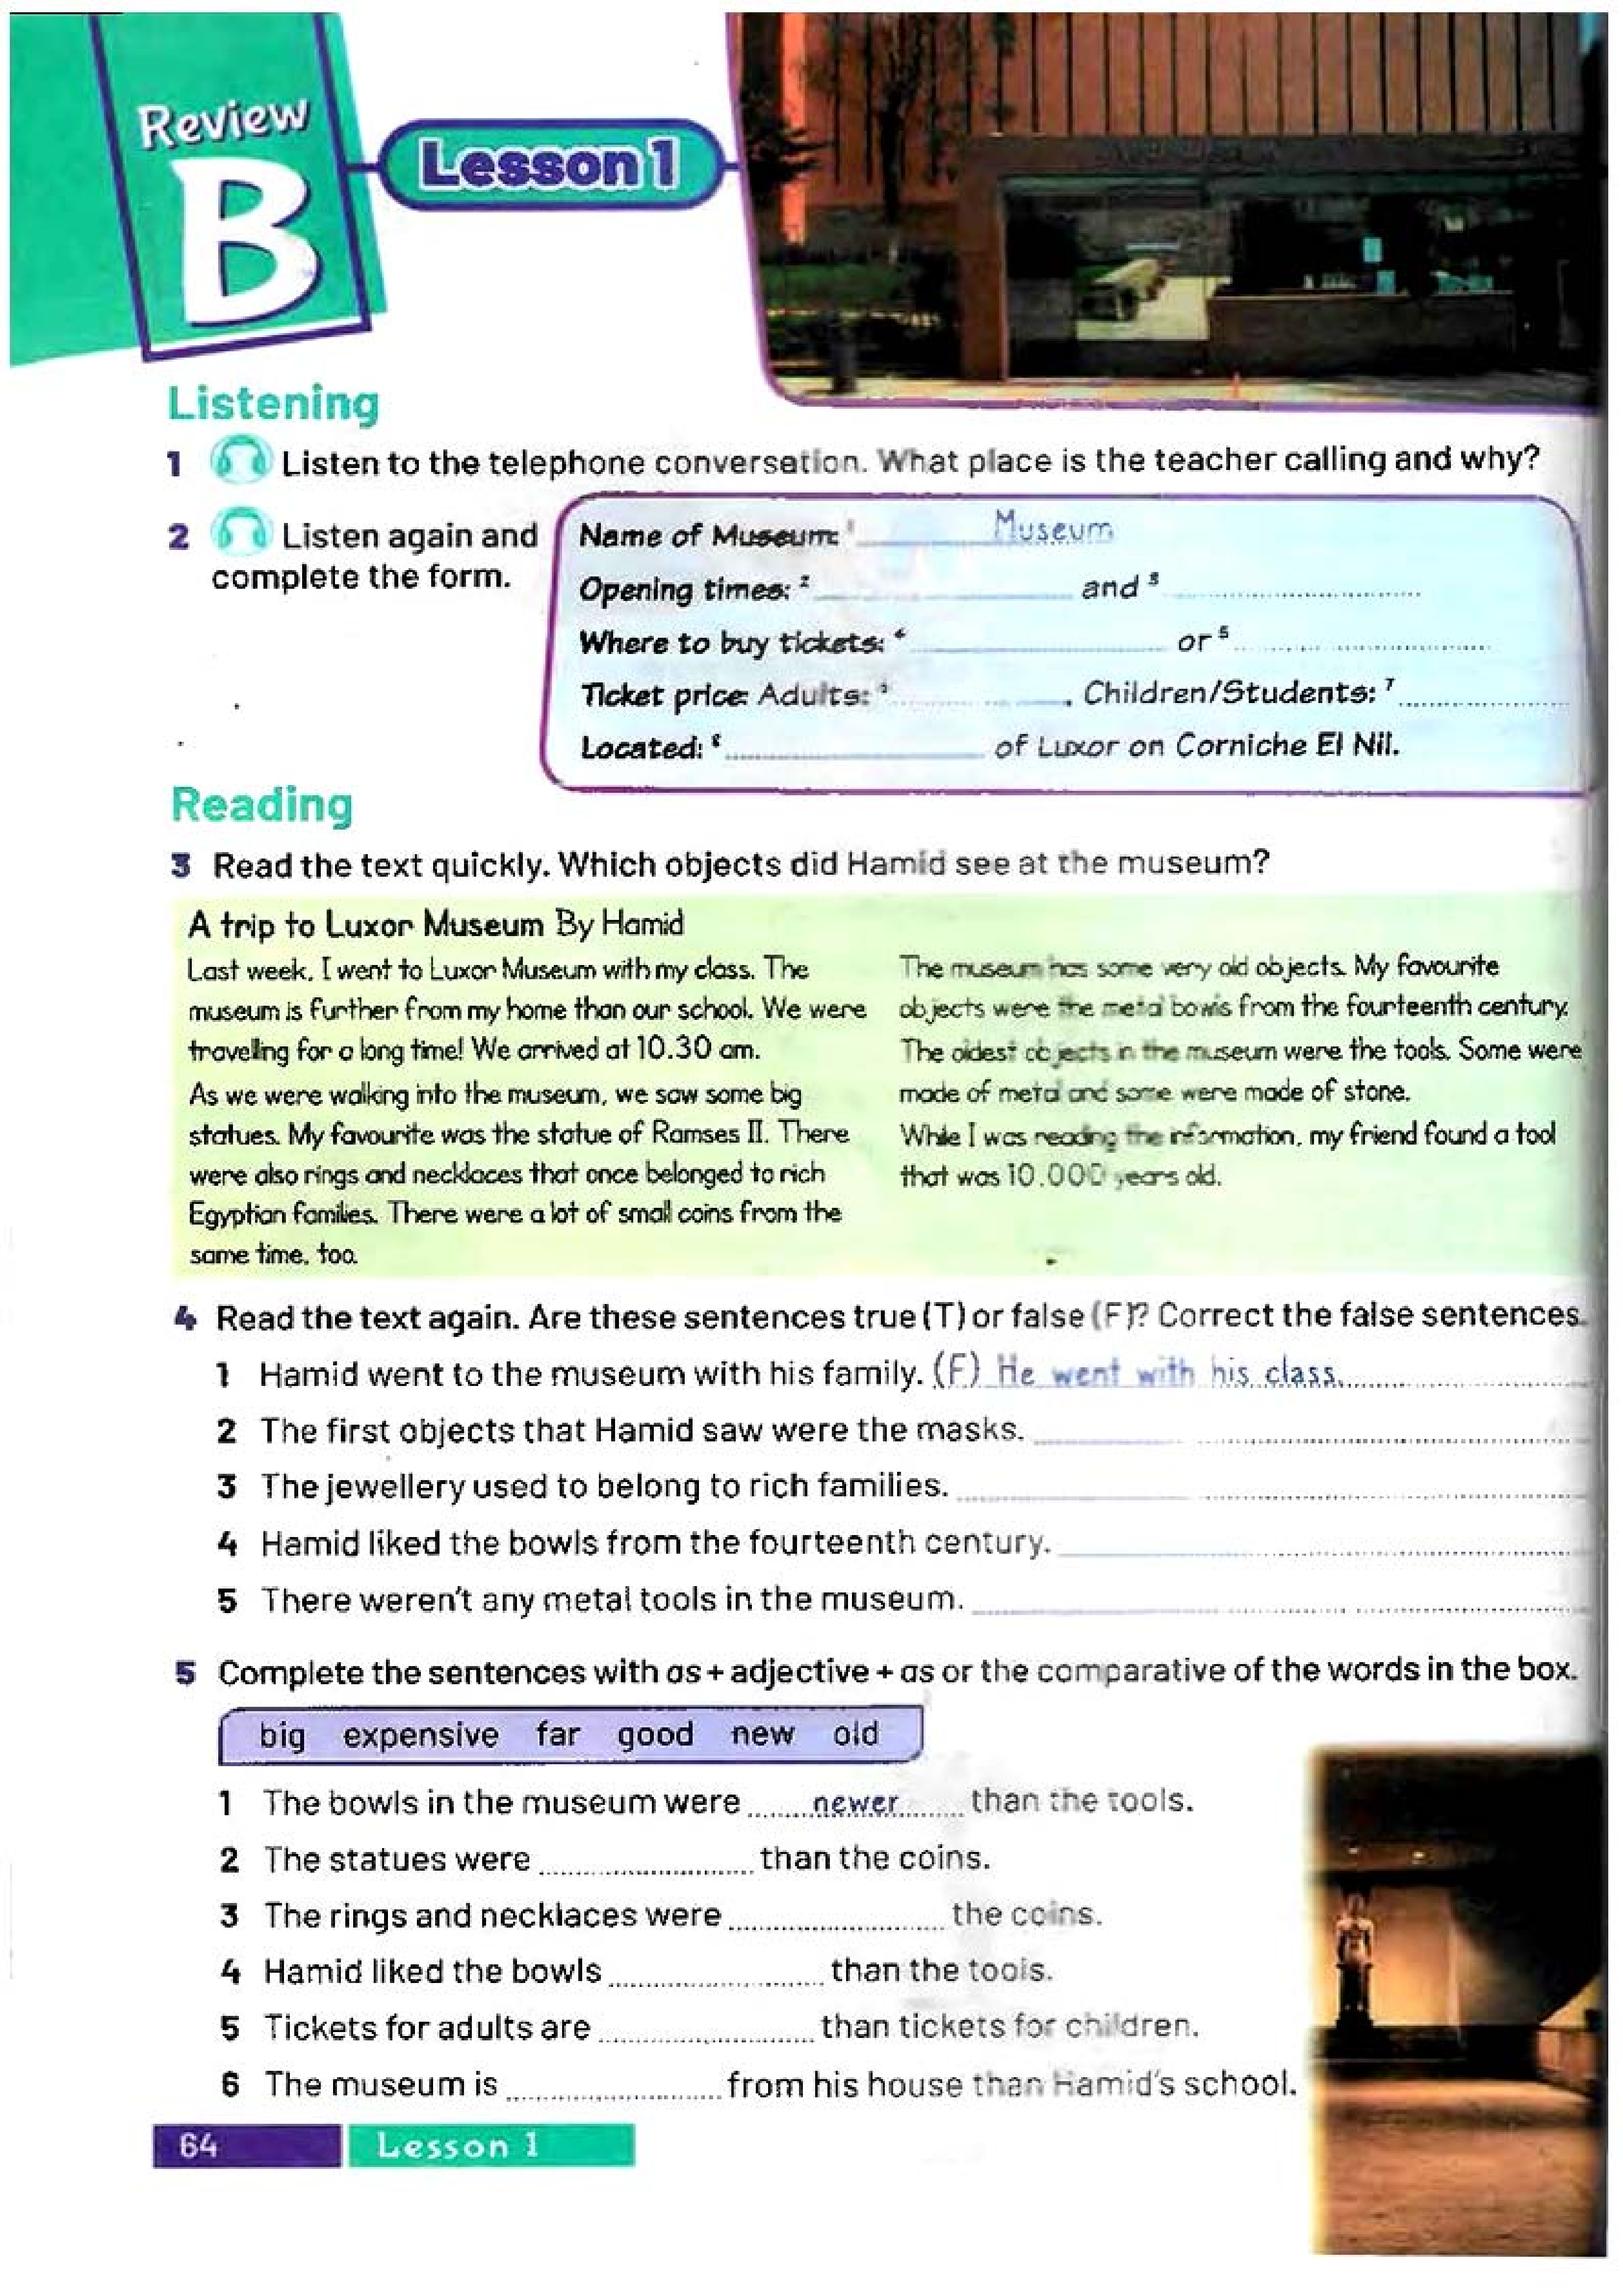 Review
B
Lesson 1
Listening
1 Listen to the telephone conversation. What place is the teacher calling and why?
2 Listen again and
complete the form.
Name of Museum: 1 Museum
Opening times: 2 and 3
Where to buy tickets: 4 or 5
Ticket price: Adults: , Children/Students: 7
Located: 8 of Luxor on Corniche El Nil.
Reading
3 Read the text quickly. Which objects did Hamid see at the museum?
A trip to Luxor Museum By Hamid
Last week, I went to Luxor Museum with my class. The
museum is further from my home than our school. We were
traveling for a long time! We arrived at 10.30 am.
As we were walking into the museum, we saw some big
statues. My favourite was the statue of Ramses II. There
were also rings and necklaces that once belonged to rich
Egyptian families. There were a lot of small coins from the
same time, too.
The museum has some very old objects. My favourite
objects were the metal bowls from the fourteenth century.
The oldest objects in the museum were the tools. Some were
made of metal and some were made of stone.
While I was reading the information, my friend found a tool
that was 10.000 years old.
4 Read the text again. Are these sentences true (T) or false (F)? Correct the false sentences.
1 Hamid went to the museum with his family. (F) He went with his class.
2 The first objects that Hamid saw were the masks.
3 The jewellery used to belong to rich families.
4 Hamid liked the bowls from the fourteenth century.
5 There weren't any metal tools in the museum.
5 Complete the sentences with as + adjective + as or the comparative of the words in the box.
big expensive far good new old
1 The bowls in the museum were newer than the tools.
2 The statues were than the coins.
3 The rings and necklaces were the coins.
4 Hamid liked the bowls than the tools.
5 Tickets for adults are than tickets for children.
6 The museum is from his house than Hamid's school.
64 Lesson 1